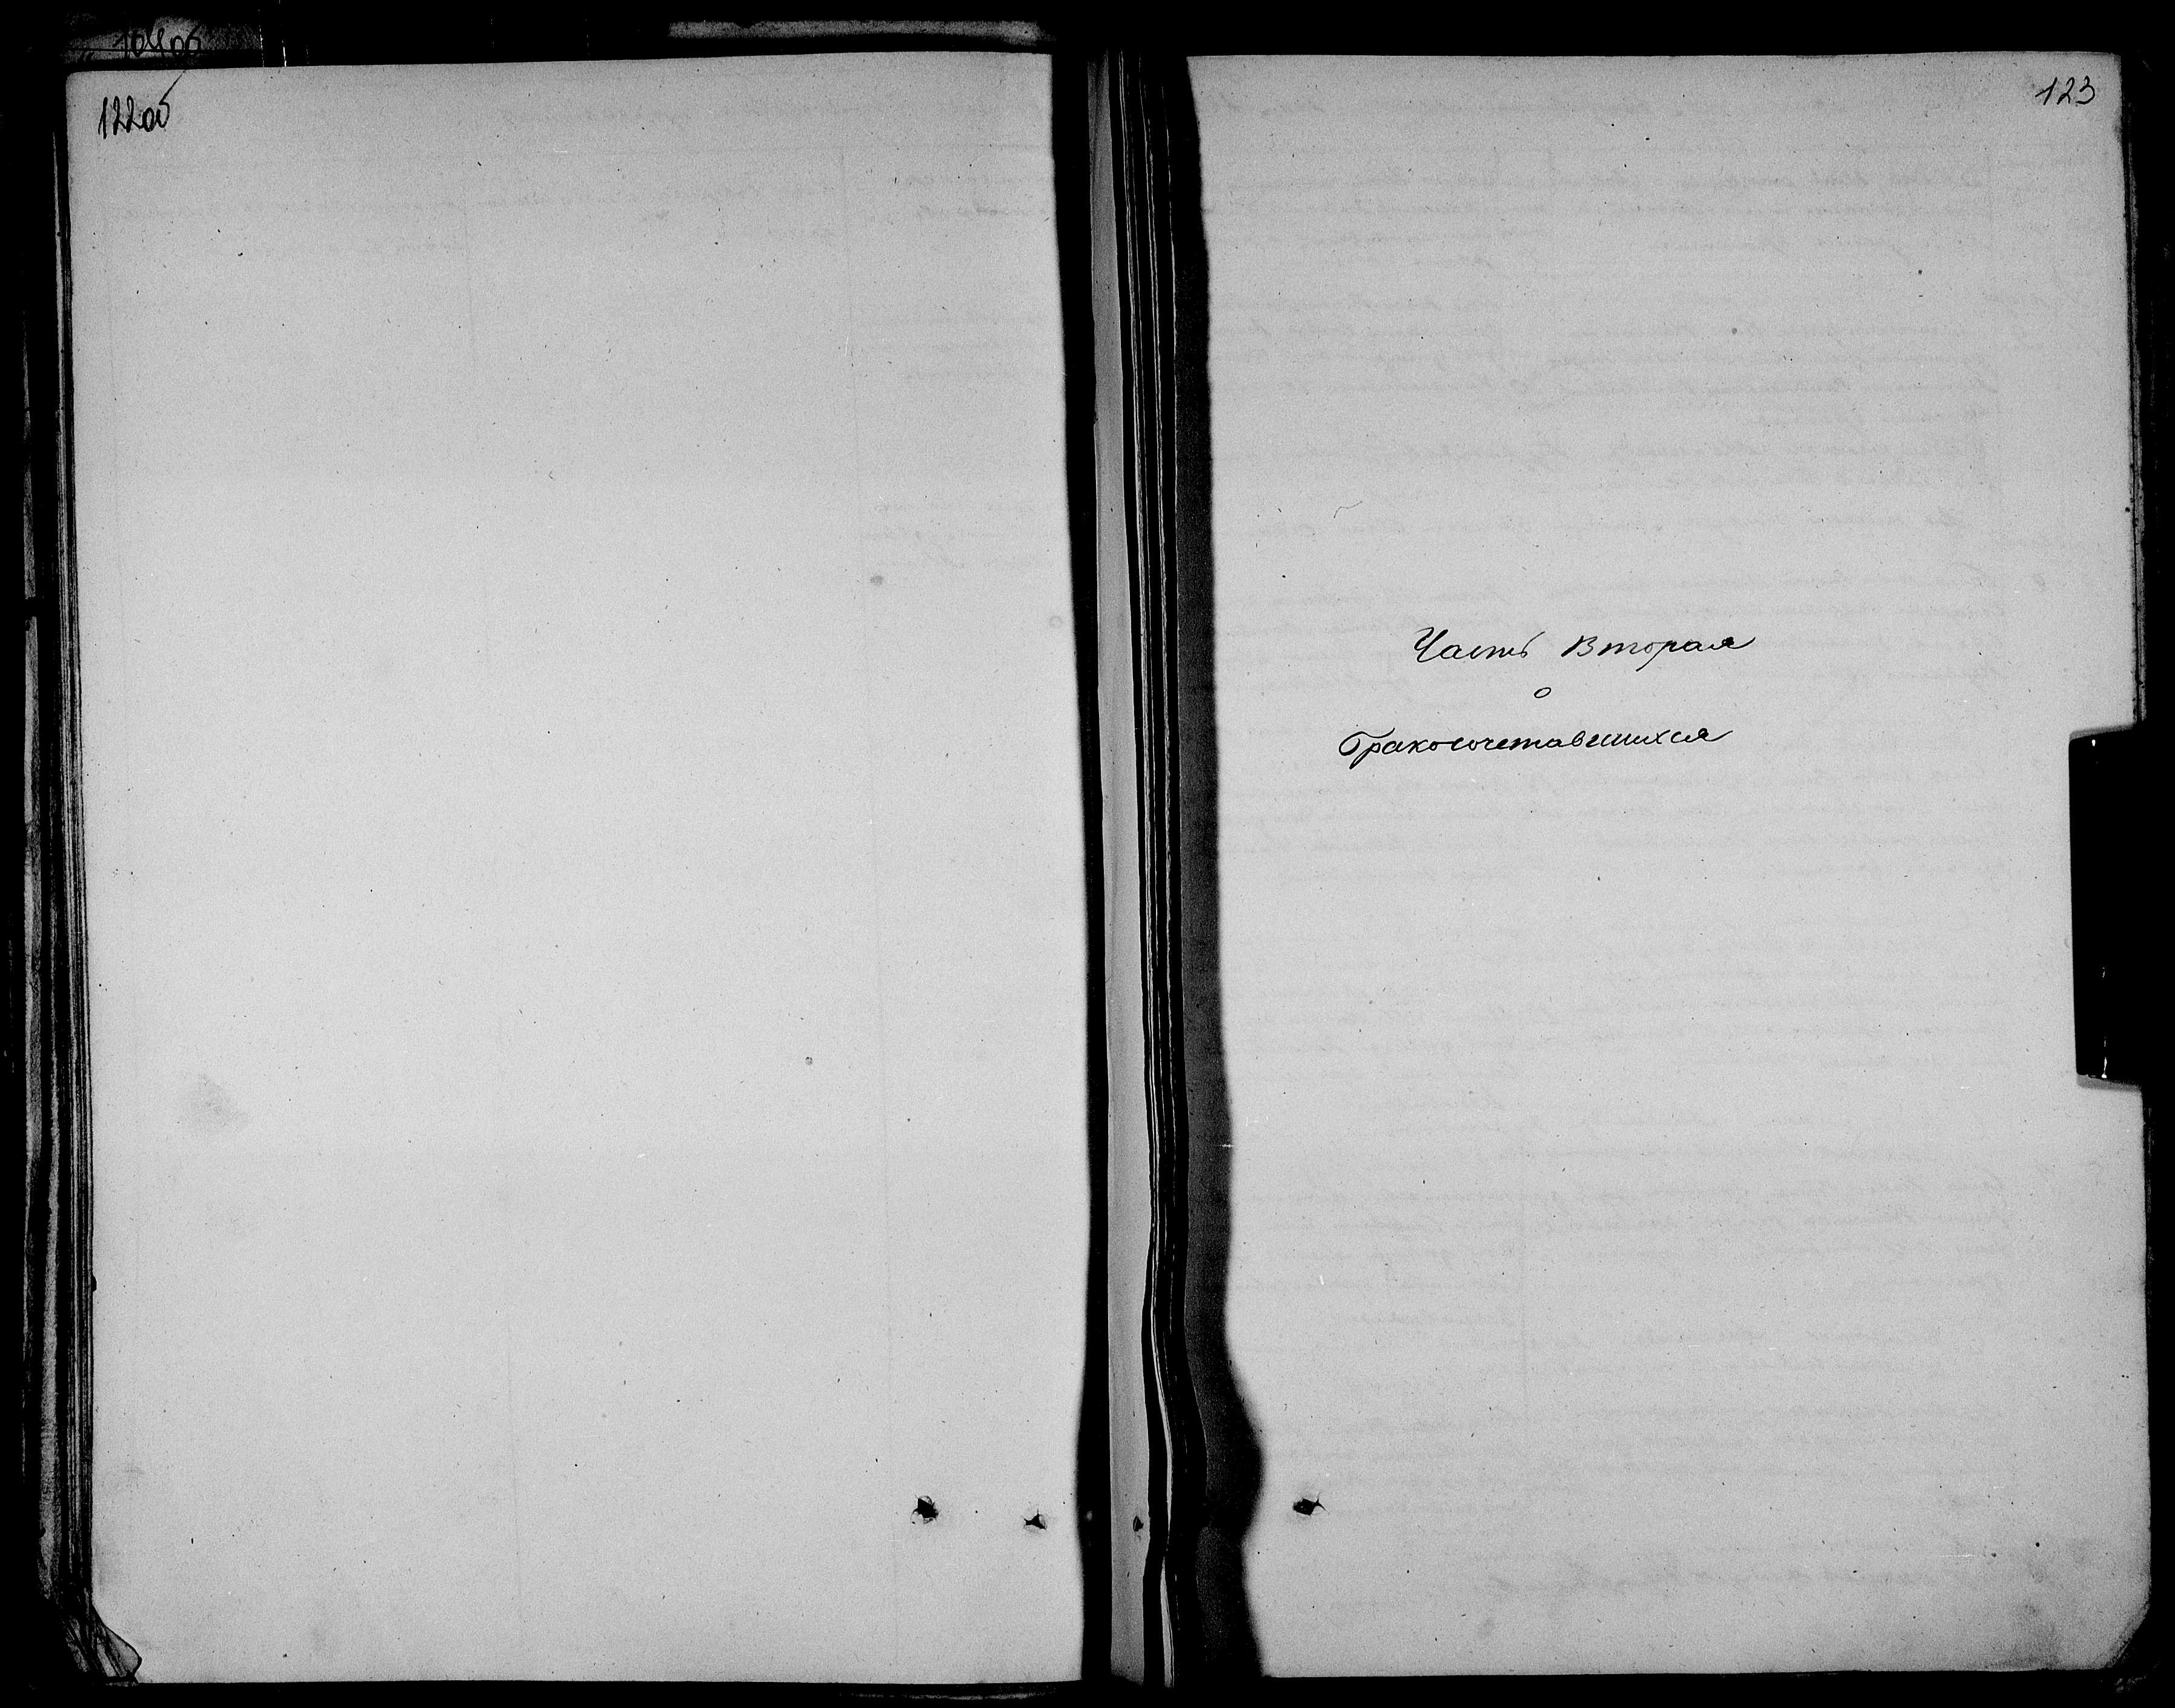 122об
123
Часть Вторая
о
бракосочетавшихся